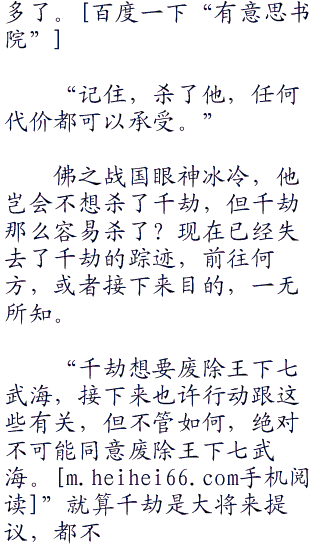 多了。[百度一下“有意思书
院”]
“记住，杀了他，任何
代价都可以承受。”
佛之战国眼神冰冷，他
岂会不想杀了千劫，但千劫
那么容易杀了？现在已经失
去了千劫的踪迹，前往何
方，或者接下来目的，一无
所知。
“千劫想要废除王下七
武海，接下来也许行动跟这
些有关，但不管如何，绝对
不可能同意废除王下七武
海。[m.heihei66.com手机阅
读]”就算千劫是大将来提
议，都不